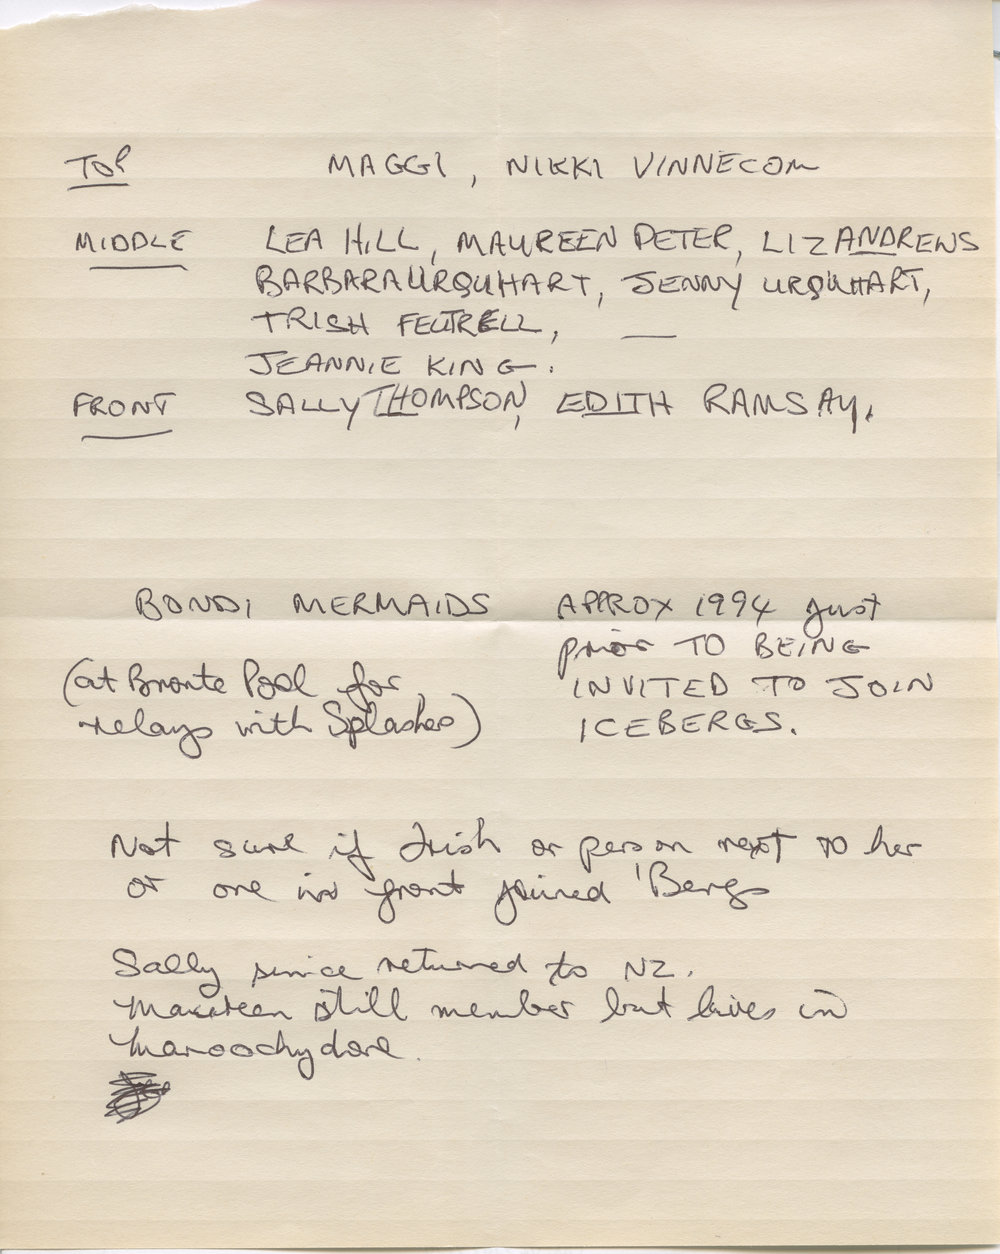 TOP MAGGI, NIKKI VINNECOM
MIDDLE LEA HILL, MAUREEN PETER, LIZ ANDREWS
BARBARA URQUHART, JENNY URQUHART,
TRISH FEUTRELL, —
JEANNIE KING.
FRONT SALLY THOMPSON, EDITH RAMSAY.
BONDI MERMAIDS APPROX 1994 just
prior TO BEING
INVITED TO JOIN
ICEBERGS.
(at Bronte Pool for
relays with Splashes)
Not sure if Trish or person next to her
or one in front joined 'Bergs
Sally since returned to NZ.
Maureen still member but lives in
Maroochydore.